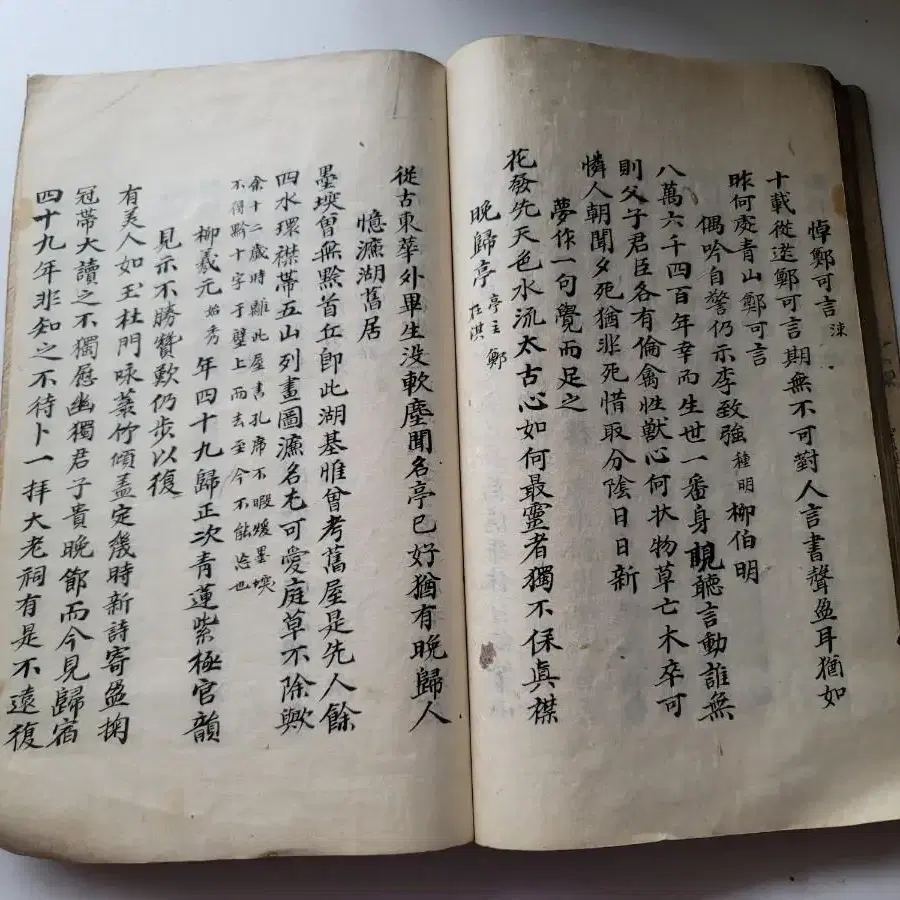 悼鄭可言 涑
十載從遊鄭可言期無不可對人言書聲盈耳猶如
昨何處青山鄭可言
偶吟自警仍示李致強 種明 柳伯明
八萬六千四百年幸而生世一番身視聽言動誰無
則父子君臣各有倫禽性獸心何狀物草亡木卒可
憐人朝聞夕死猶非死惜取分陰日日新
夢作一句覺而足之
花發先天色水流太古心如何最靈者獨不保真襟
晚歸亭 亭主鄭在洪
從古東華外畢生没軟塵聞名亭已好猶有晚歸人
憶濂湖舊居
墨墺曾無黔首丘卽此湖基惟曾考舊屋是先人餘
四水環襟帶五山列畫圖濂名尤可愛庭草不除歟
余十二歲時離此屋書孔席不暇煖墨墺
不得黔十字于壁上而去至今不能忘也
柳羲元 始秀 年四十九歸正次青蓮紫極官韻
見示不勝贊歎仍步以復
有美人如玉杜門咏菉竹傾盖定幾時新詩寄盈掬
冠帶大讀之不獨慰幽獨君子貴晚節而今見歸宿
四十九年非知之不待卜一拜大老祠有是不遠復